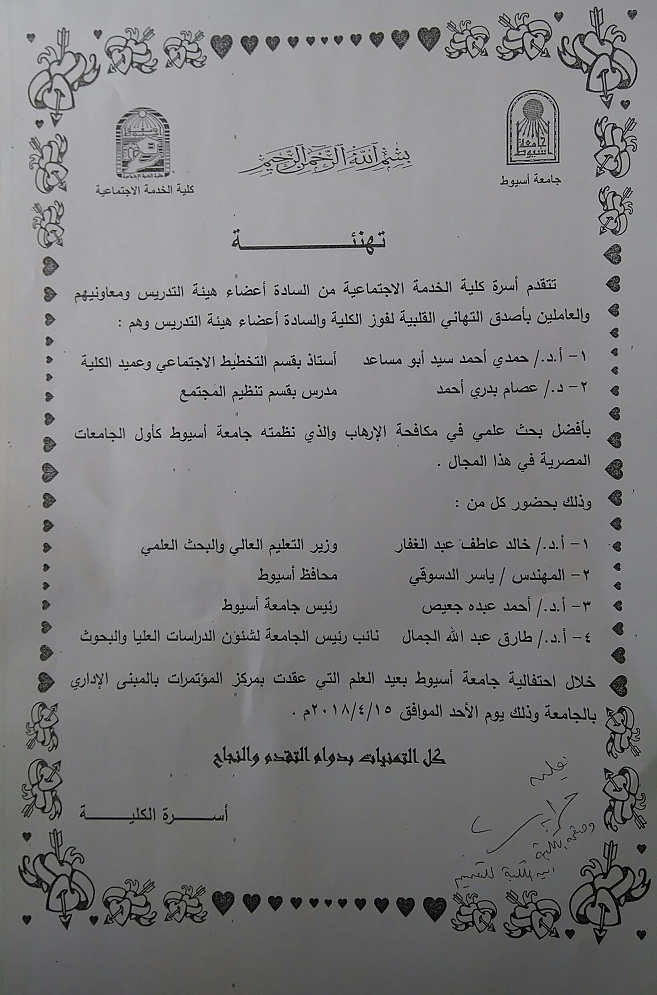 بسم الله الرحمن الرحيم
جامعة أسيوط
كلية الخدمة الاجتماعية
تهنئـــــــــــة
تتقدم أسرة كلية الخدمة الاجتماعية من السادة أعضاء هيئة التدريس ومعاونيهم
والعاملين بأصدق التهاني القلبية لفوز الكلية والسادة أعضاء هيئة التدريس وهم :
١- أ.د./ حمدي أحمد سيد أبو مساعد أستاذ بقسم التخطيط الاجتماعي وعميد الكلية
٢- د./ عصام بدري أحمد مدرس بقسم تنظيم المجتمع
بأفضل بحث علمي في مكافحة الإرهاب والذي نظمته جامعة أسيوط كأول الجامعات
المصرية في هذا المجال .
وذلك بحضور كل من :
١- أ.د./ خالد عاطف عبد الغفار وزير التعليم العالي والبحث العلمي
٢- المهندس / ياسر الدسوقي محافظ أسيوط
٣- أ.د./ أحمد عبده جعيص رئيس جامعة أسيوط
٤- أ.د./ طارق عبد الله الجمال نائب رئيس الجامعة لشئون الدراسات العليا والبحوث
خلال احتفالية جامعة أسيوط بعيد العلم التي عقدت بمركز المؤتمرات بالمبنى الإداري
بالجامعة وذلك يوم الأحد الموافق ٢٠١٨/٤/١٥م .
كل التمنيات بدوام التقدم والنجاح
أســـرة الكليـــة